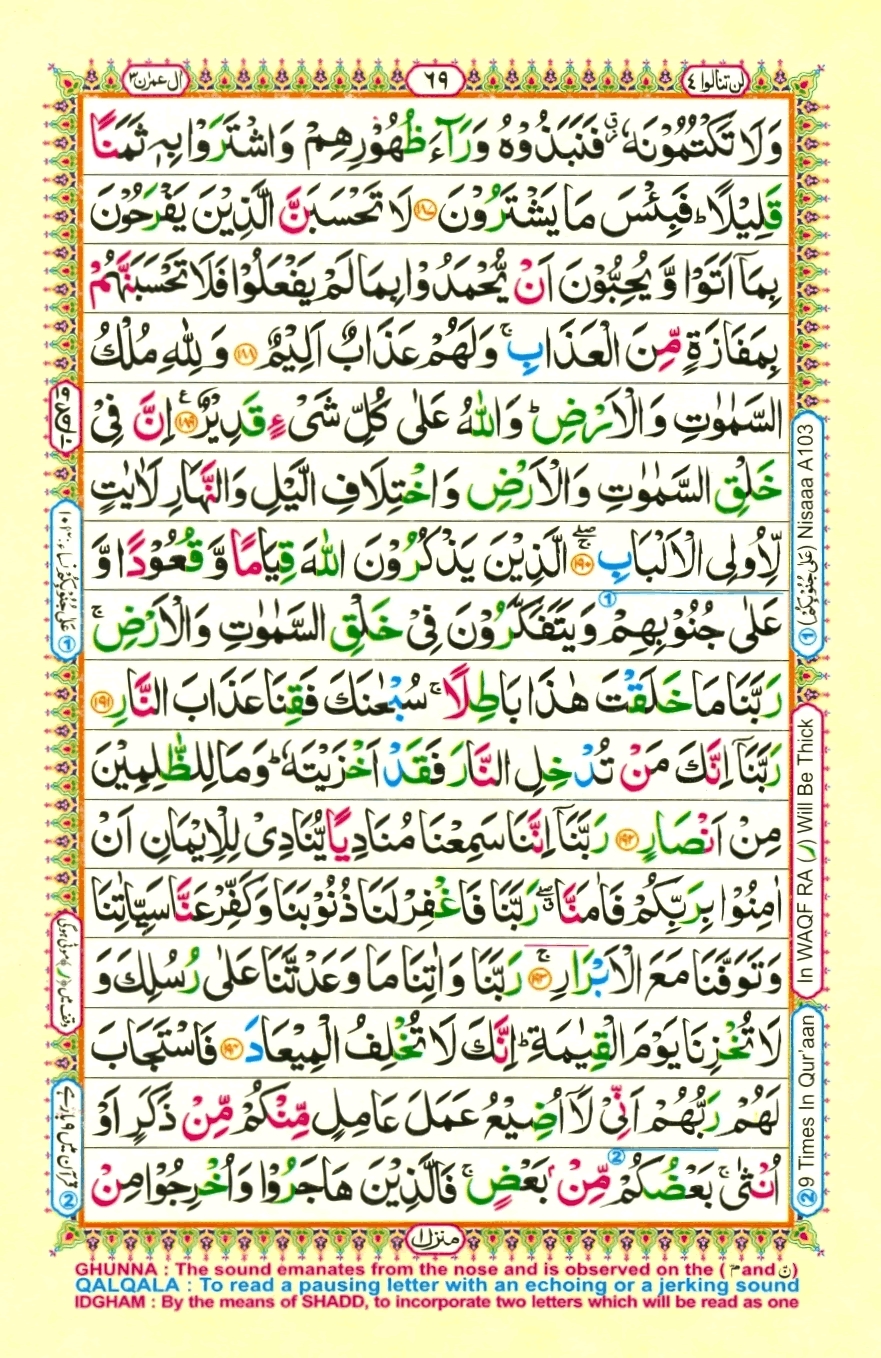 لن تنالوا ٤ ٦٩ اٰل عمرٰن ٣
وَلَا تَكْتُمُوْنَهٗ ز فَنَبَذُوْهُ وَرَآءَ ظُهُوْرِهِمْ وَاشْتَرَوْا بِهٖ ثَمَنًا
قَلِيْلًا ؕ فَبِئْسَ مَا يَشْتَرُوْنَ ۝۱۸۷ لَا تَحْسَبَنَّ الَّذِيْنَ يَفْرَحُوْنَ
بِمَاۤ اَتَوْا وَّ يُحِبُّوْنَ اَنْ يُّحْمَدُوْا بِمَا لَمْ يَفْعَلُوْا فَلَا تَحْسَبَنَّهُمْ
بِمَفَازَةٍ مِّنَ الْعَذَابِ ۚ وَلَهُمْ عَذَابٌ اَلِيْمٌ ۝۱۸۸ وَ لِلّٰهِ مُلْكُ
السَّمٰوٰتِ وَالْاَرْضِ ؕ وَاللّٰهُ عَلٰى كُلِّ شَىْءٍ قَدِيْرٌ ۝۱۸۹ اِنَّ فِىْ
خَلْقِ السَّمٰوٰتِ وَالْاَرْضِ وَاخْتِلَافِ الَّيْلِ وَالنَّهَارِ لَاٰيٰتٍ
لِّاُولِى الْاَلْبَابِ ۝۱۹۰ الَّذِيْنَ يَذْكُرُوْنَ اللّٰهَ قِيَامًا وَّ قُعُوْدًا وَّ
عَلٰى جُنُوْبِهِمْ وَيَتَفَكَّرُوْنَ فِىْ خَلْقِ السَّمٰوٰتِ وَالْاَرْضِ ۚ
رَبَّنَا مَا خَلَقْتَ هٰذَا بَاطِلًا ۚ سُبْحٰنَكَ فَقِنَا عَذَابَ النَّارِ ۝۱۹۱
رَبَّنَاۤ اِنَّكَ مَنْ تُدْخِلِ النَّارَ فَقَدْ اَخْزَيْتَهٗ ؕ وَمَا لِلظّٰلِمِيْنَ
مِنْ اَنْصَارٍ ۝۱۹۲ رَبَّنَاۤ اِنَّنَا سَمِعْنَا مُنَادِيًا يُّنَادِىْ لِلْاِيْمَانِ اَنْ
اٰمِنُوْا بِرَبِّكُمْ فَاٰمَنَّا ۖ رَبَّنَا فَاغْفِرْ لَنَا ذُنُوْبَنَا وَكَفِّرْ عَنَّا سَيِّاٰتِنَا
وَتَوَفَّنَا مَعَ الْاَبْرَارِ ۝۱۹۳ رَبَّنَا وَاٰتِنَا مَا وَعَدْتَّنَا عَلٰى رُسُلِكَ وَ
لَا تُخْزِنَا يَوْمَ الْقِيٰمَةِ ؕ اِنَّكَ لَا تُخْلِفُ الْمِيْعَادَ ۝۱۹۴ فَاسْتَجَابَ
لَهُمْ رَبُّهُمْ اَنِّىْ لَاۤ اُضِيْعُ عَمَلَ عَامِلٍ مِّنْكُمْ مِّنْ ذَكَرٍ اَوْ
اُنْثٰى ۚ بَعْضُكُمْ مِّنْۢ بَعْضٍ ۚ فَالَّذِيْنَ هَاجَرُوْا وَاُخْرِجُوْا مِنْ
منزل ١
① (عَلٰى جُنُوْبِكُمْ) Nisaaa A103
In WAQF RA (ر) Will Be Thick
② 9 Times In Qur'aan
وقف میں (ر) موٹی ہوگی
② قرآن میں ۹ بار ہے
GHUNNA : The sound emanates from the nose and is observed on the ( مّ and نّ )
QALQALA : To read a pausing letter with an echoing or a jerking sound
IDGHAM : By the means of SHADD, to incorporate two letters which will be read as one